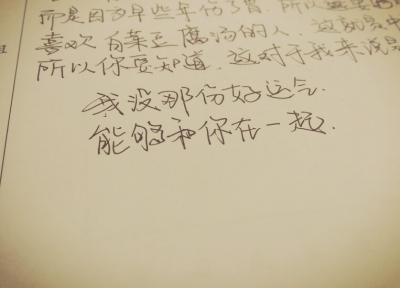 而是因为早些年伤了胃，所以
喜欢白菜豆腐汤的人。这就是
所以你要知道，这对于我来说是
我没那份好运气.
能够和你在一起.